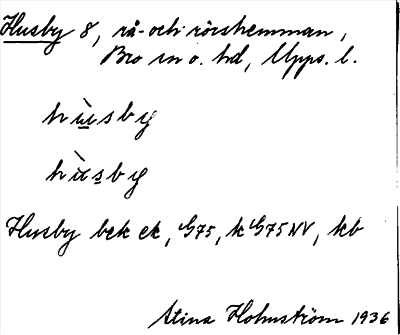 Husby 8, rå- och rörshemman,
Bro sn o. hd, Upps. l.
hùsby
hùsby
Husby bek ek, G75, k G75 NV, kb
Stina Holmström 1936